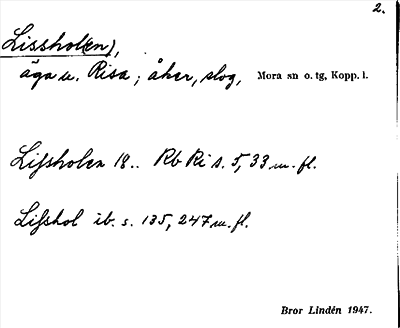 2.
Lisshol(en),
äga u. Risa; åker, slog, Mora sn o. tg, Kopp. l.
Lifsholen 18.. Rb Ri s. 5, 33 m. fl.
Lifshol ib. s. 135, 247 m. fl.
Bror Lindén 1947.